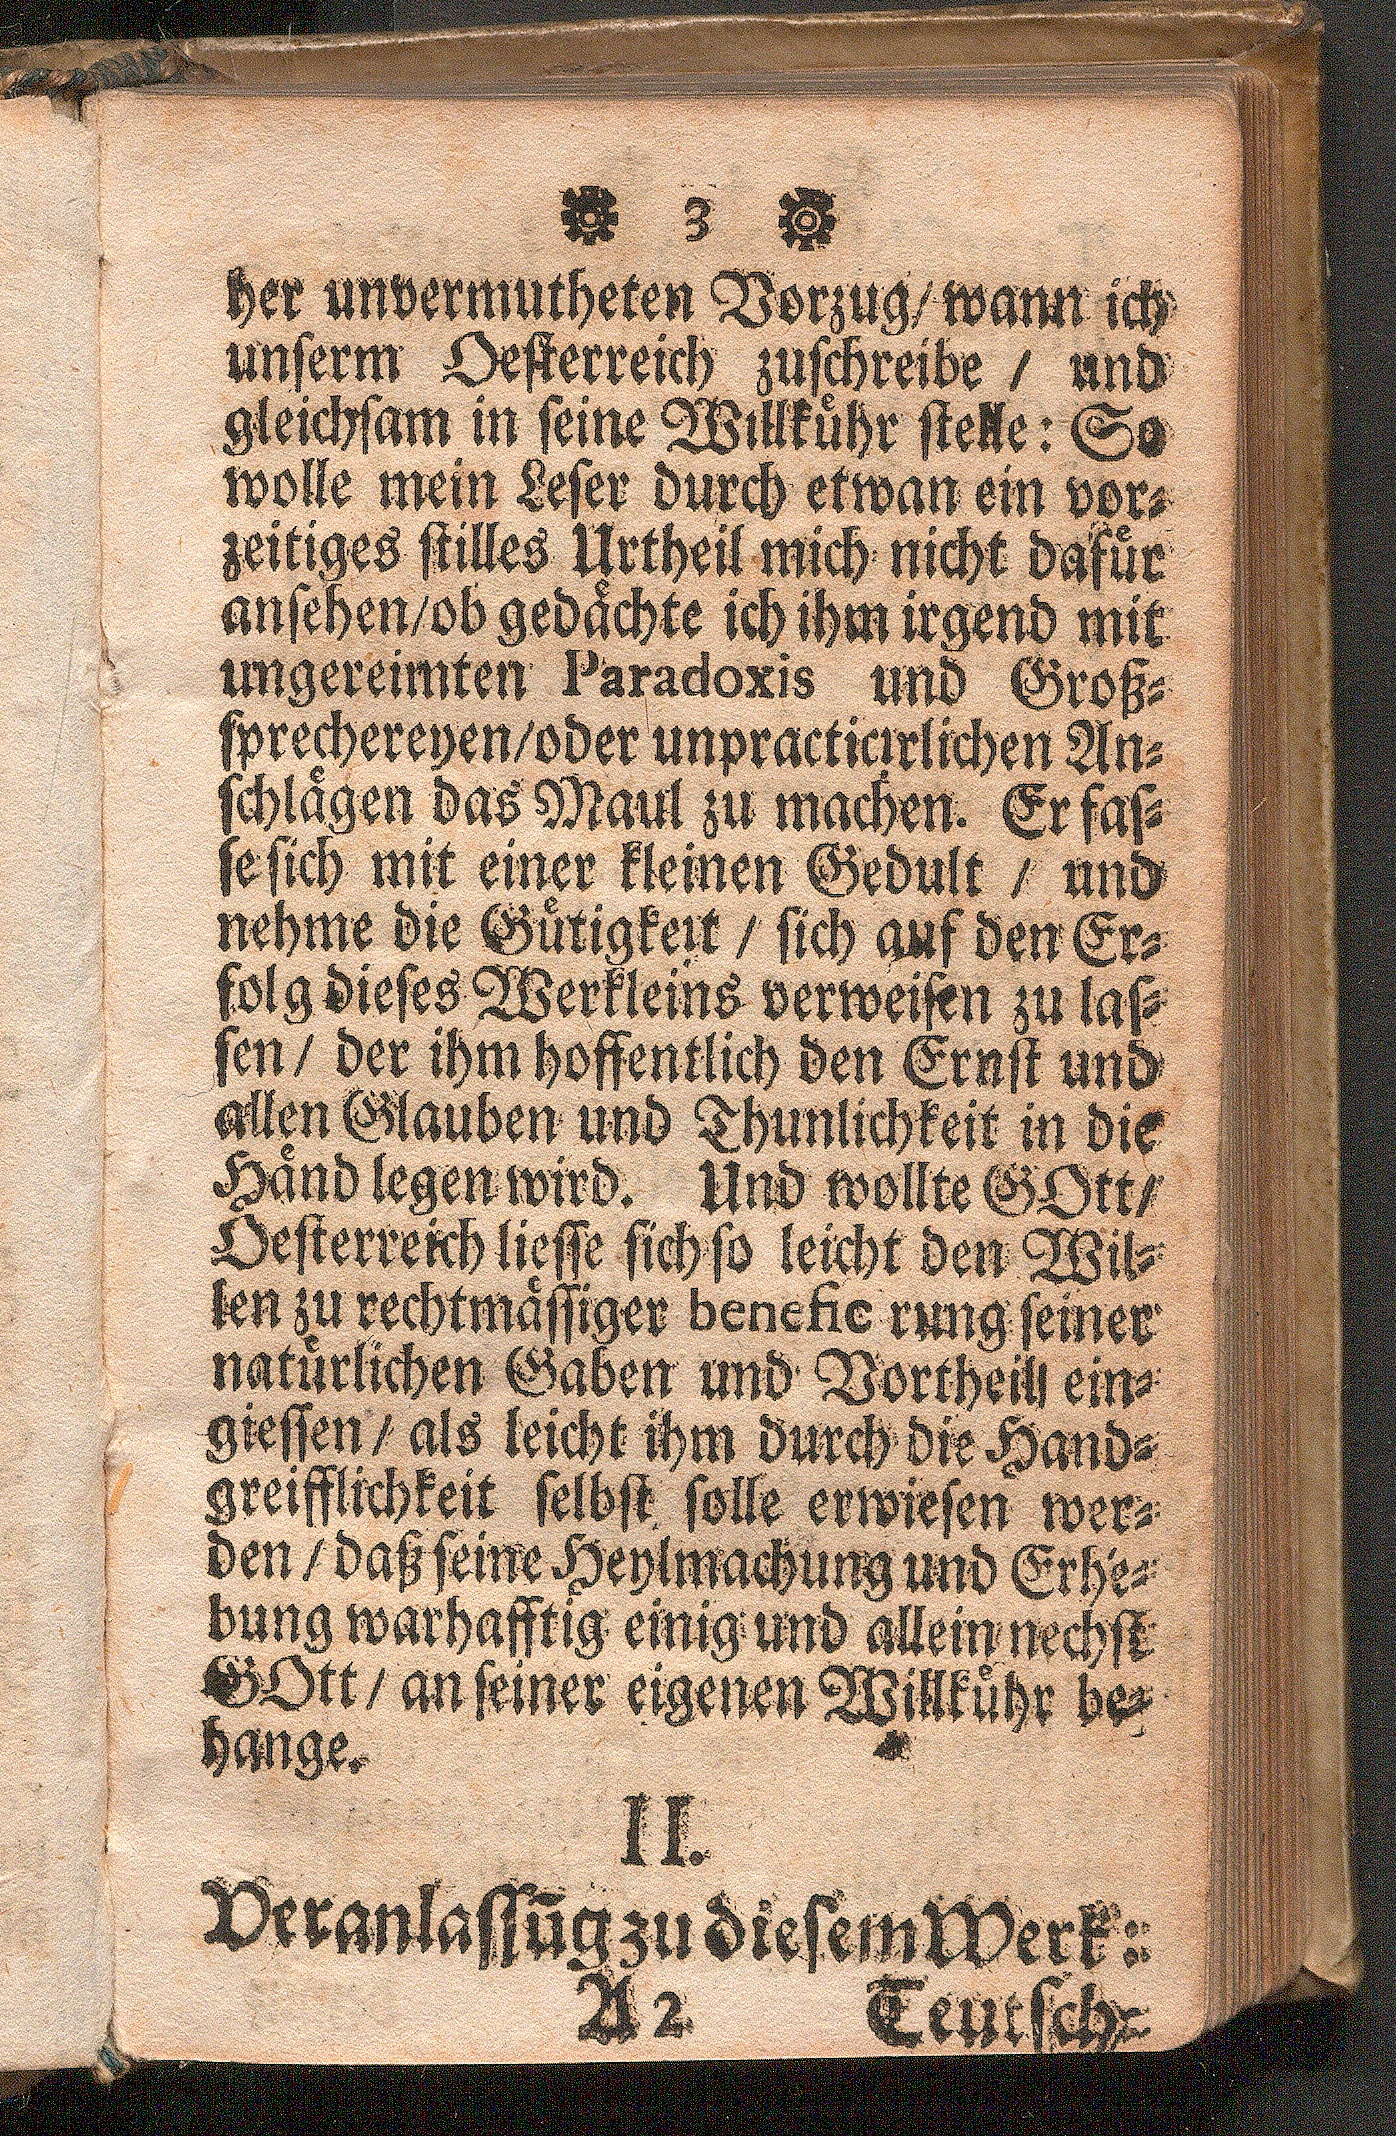 3
her unvermutheten Vorzug/ wann ich
unserm Oesterreich zuschreibe / und
gleichsam in seine Willkůhr stelle: So
wolle mein Leser durch etwan ein vor-
zeitiges stilles Urtheil mich nicht dafůr
ansehen/ob gedaͤchte ich ihm irgend mit
ungereimten Paradoxis und Groß-
sprechereyen/oder unpracticirlichen An-
schlaͤgen das Maul zu machen. Er fas-
se sich mit einer kleinen Gedult / und
nehme die Gůtigkeit / sich auf den Er-
folg dieses Werkleins verweisen zu las-
sen/ der ihm hoffentlich den Ernst und
allen Glauben und Thunlichkeit in die
Haͤnd legen wird. Und wollte GOtt/
Oesterreich liesse sich so leicht den Wil-
len zu rechtmaͤssiger benefic rung seiner
natůrlichen Gaben und Vortheil ein-
giessen / als leicht ihm durch die Hand-
greifflichkeit selbst solle erwiesen wer-
den / daß seine Heylmachung und Erhe-
bung warhafftig einig und allein nechst
GOtt / an seiner eigenen Willkůhr be-
hange.
II.
Veranlassūg zu diesem Werk:
A 2 Teutsch-